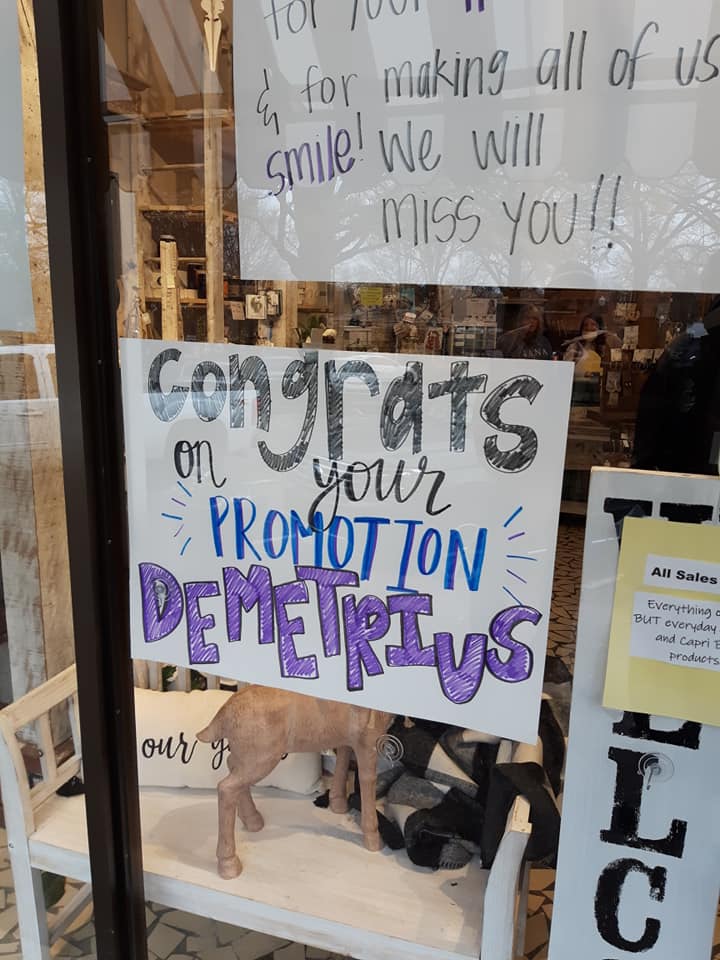 for your
& for making all of us
smile! We will
miss you!!
congrats
on your
PROMOTION
DEMETRIUS
All Sales
Everything
BUT everyday
and Capri B
products
our
L
C